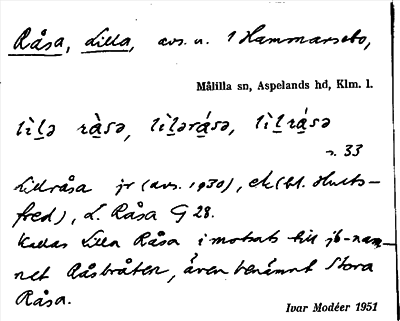 Råsa, Lilla, avs. u. 1 Hammarsebo,
Målilla sn, Aspelands hd, Klm. l.
lìl̠ə rà̠sə, lìl̠ərá̠sə, lìl̠rá̠sə
s. 33
Lillråsa jr (avs. 1930), ek (bl. Hults-
fred), L. Råsa G 28.
Kallas Lilla Råsa i motsats till jb-nam-
net Råsbråten, även benämnt Stora
Råsa.
Ivar Modéer 1951